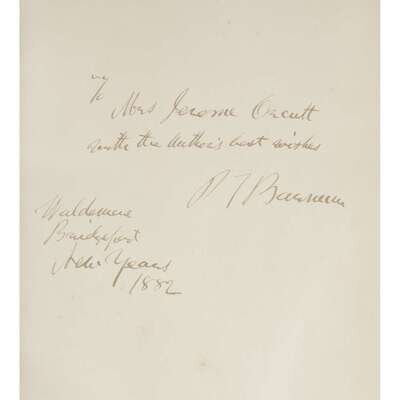 To
Mrs Jerome Orcutt
with the Author's best wishes
P T Barnum
Waldemere
Bridgeport
New Years
1882